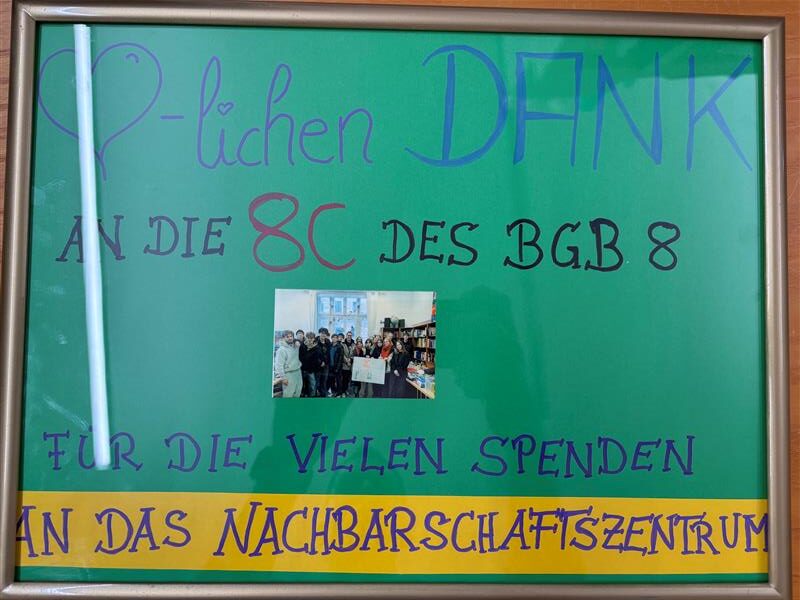 ♡-lichen DANK
AN DIE 8C DES BGB 8
FÜR DIE VIELEN SPENDEN
AN DAS NACHBARSCHAFTSZENTRUM